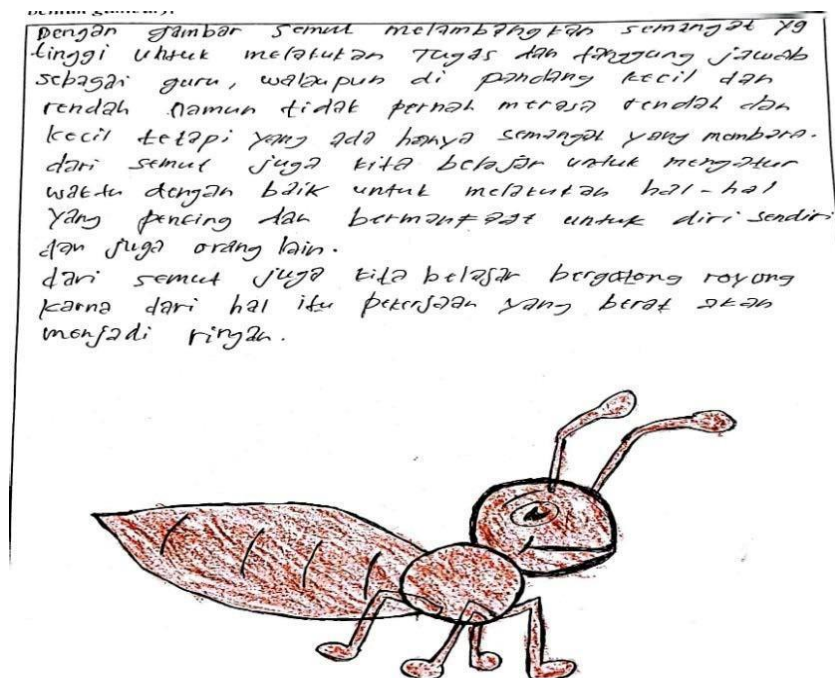 Dengan gambar semut melambangkan semangat yg
tinggi untuk melakukan Tugas dan tanggung jawab
sebagai guru, walaupun di pandang kecil dan
rendah namun tidak pernah merasa rendah dan
kecil tetapi yang ada hanya semangat yang membara.
dari semut juga kita belajar untuk mengatur
waktu dengan baik untuk melakukan hal-hal
yang penting dan bermanfaat untuk diri sendiri
dan juga orang lain.
dari semut juga kita belajar bergotong royong
karna dari hal itu pekerjaan yang berat akan
menjadi ringan.